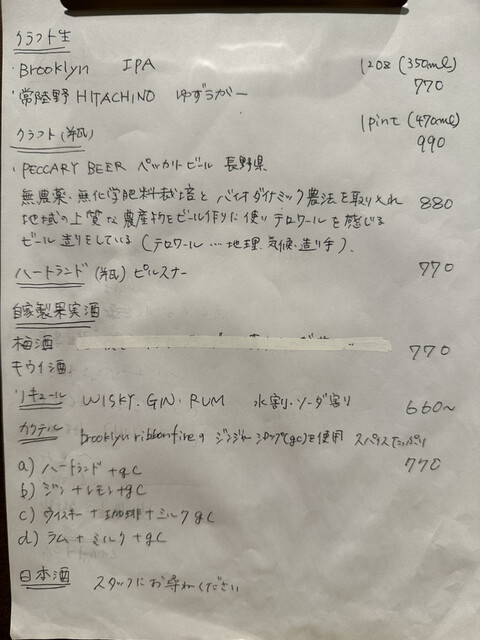 クラフト生
・Brooklyn IPA 12oz (350ml)
770
・常陸野 HITACHINO ゆずラガー
1pint (470ml)
クラフト(瓶) 990
・PECCARY BEER ペッカリービール 長野県
無農薬・無化学肥料栽培とバイオダイナミック農法を取り入れ 880
地域の上質な農産物をビール作りに使い テロワールを感じる
ビール造りをしている (テロワール…地理.気候.造り手).
ハートランド (瓶) ピルスナー 770
自家製果実酒
梅酒 770
キウイ酒
リキュール WISKY.GIN.RUM 水割り・ソーダ割り 660~
カクテル brooklyn ribbonfireの ジンジャーシロップ(gc)を使用 スパイスたっぷり
a) ハートランド +gc 770
b) ジン+レモン+gc
c) ウイスキー+珈琲+ミルクgc
d) ラム+ミルク+gc
日本酒 スタッフにお尋ねください